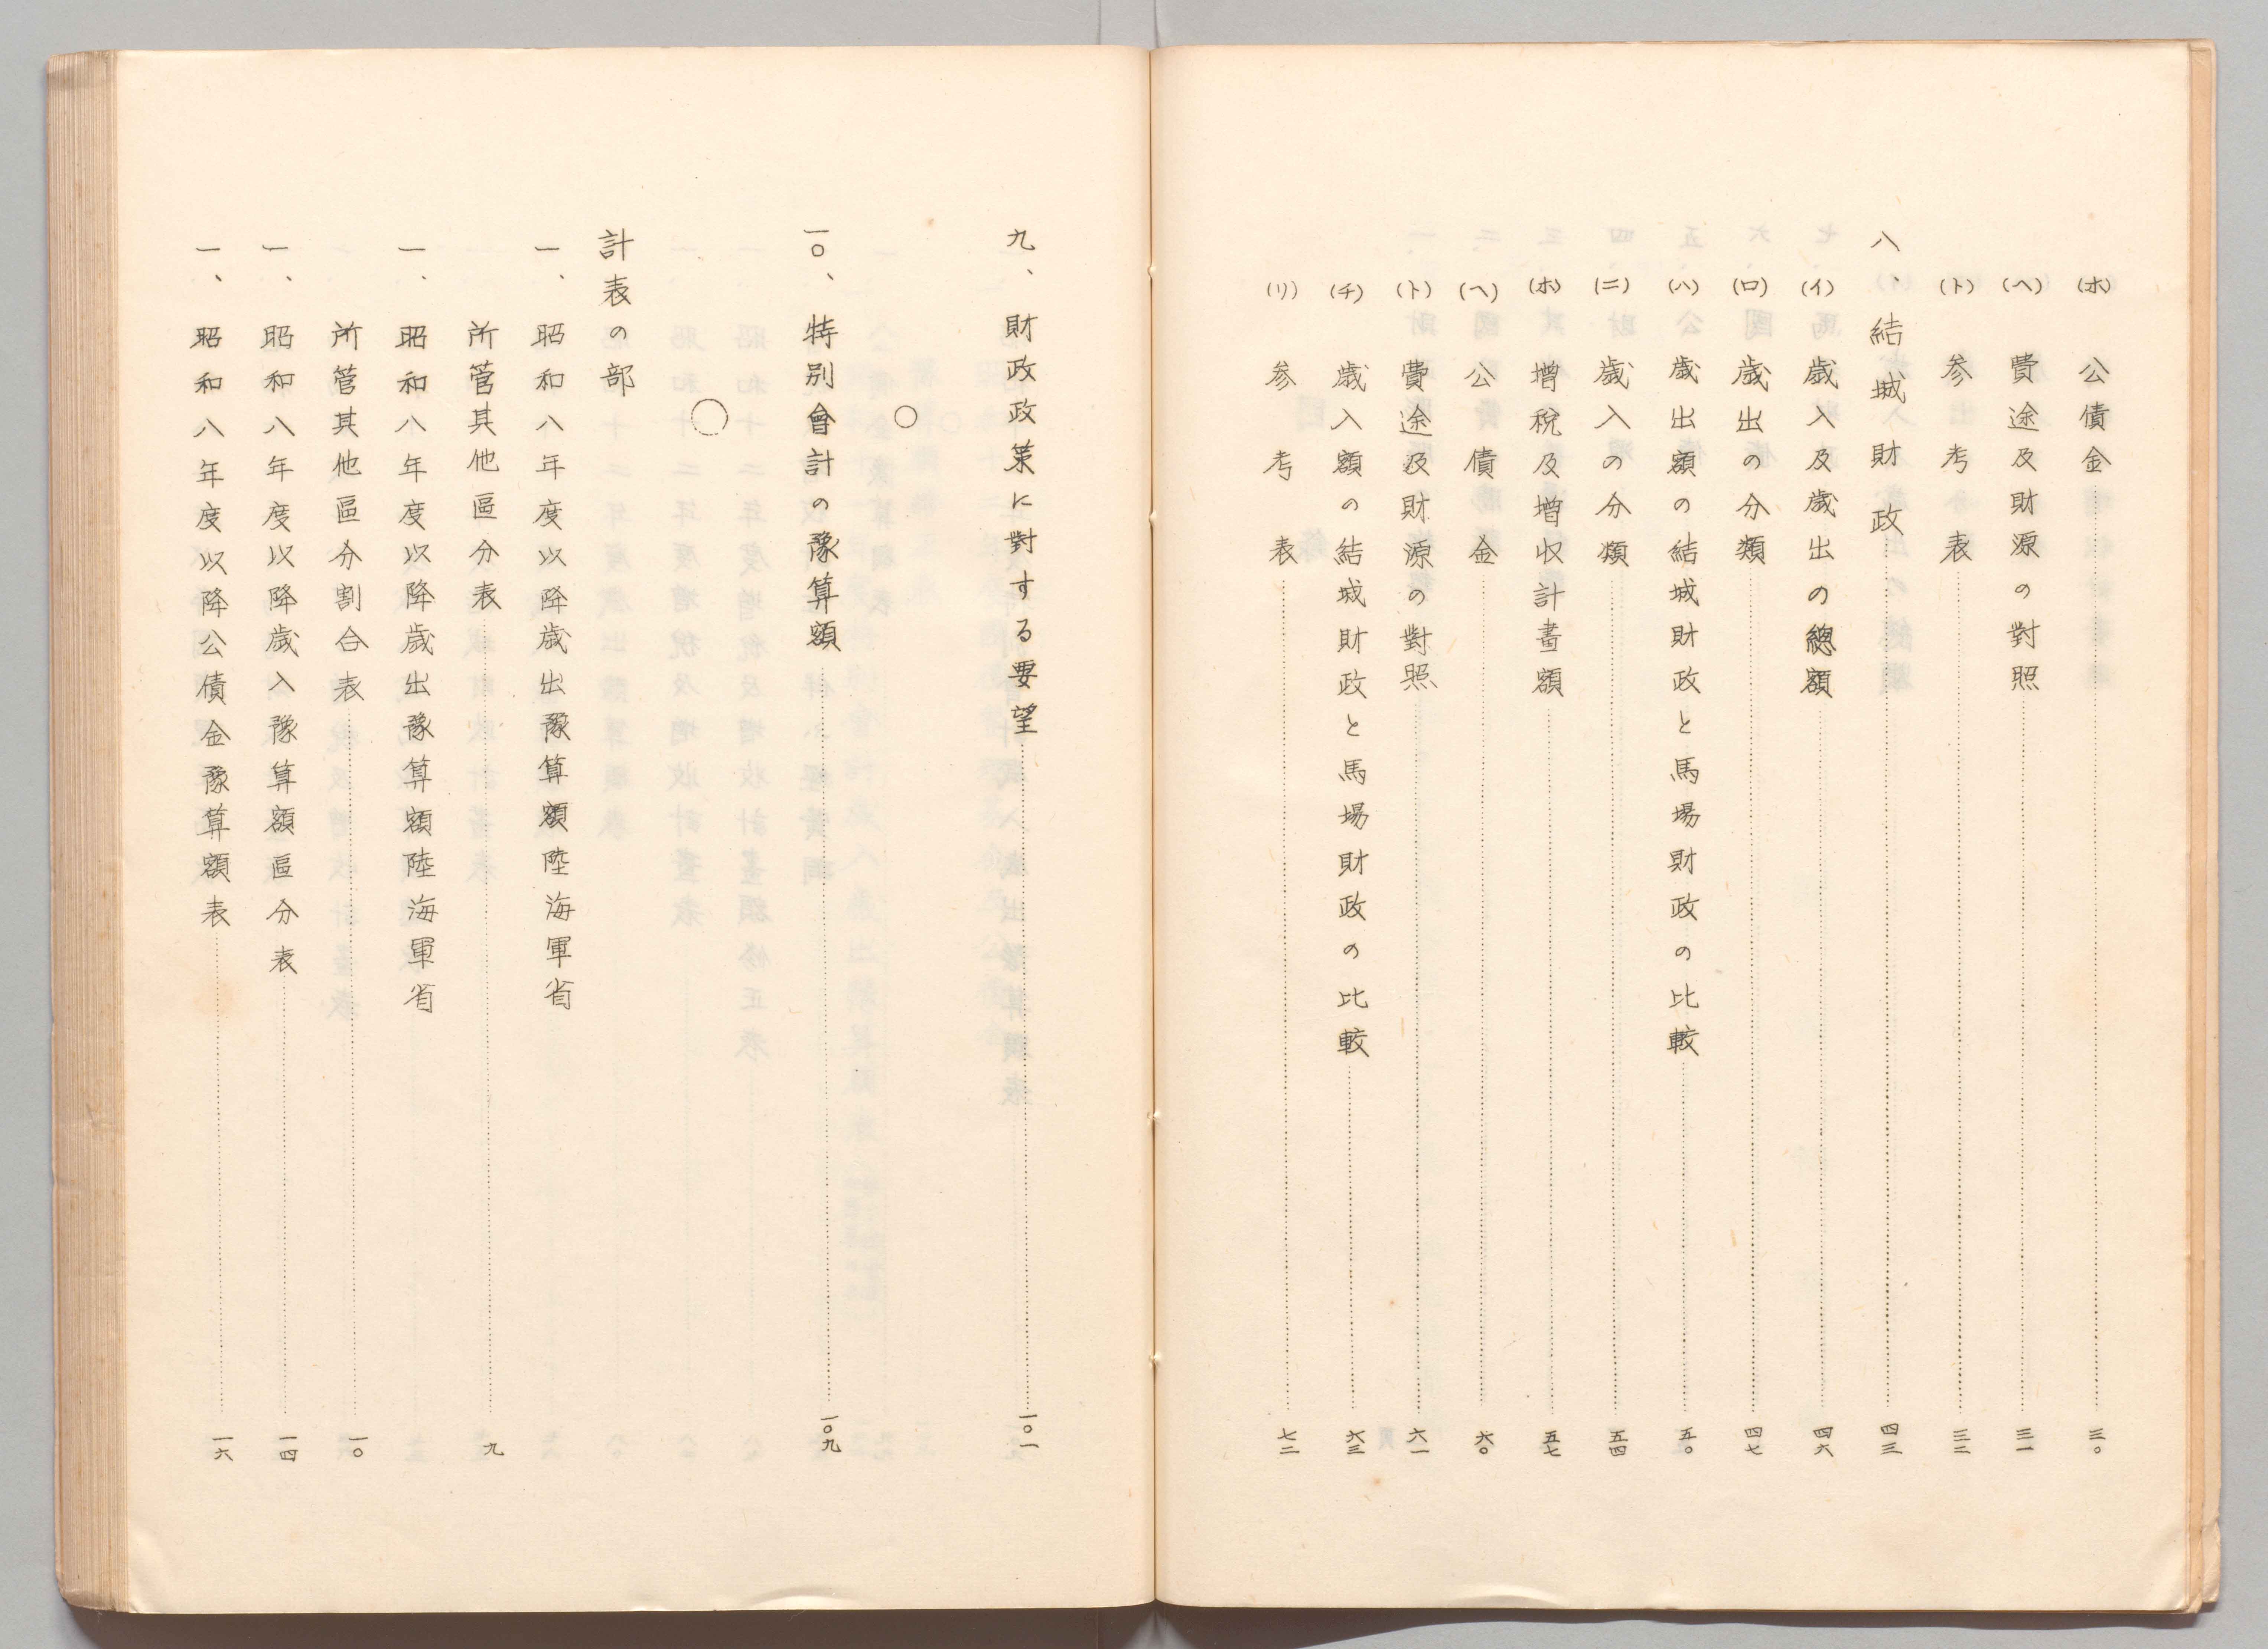 (ホ) 公債金……三〇
(ヘ) 費途及財源の對照……三一
(ト) 参考表……三二
八、結城財政……四三
(イ) 歳入及歳出の總額……四六
(ロ) 歳出の分類……四七
(ハ) 歳出額の結城財政と馬場財政の比較……五〇
(ニ) 歳入の分類……五四
(ホ) 増税及増収計畫額……五七
(ヘ) 公債金……六〇
(ト) 費途及財源の對照……六一
(チ) 歳入額の結城財政と馬場財政の比較……六三
(リ) 参考表……七二
九、財政政策に對する要望……一〇一
○
一〇、特別會計の豫算額……一〇九
○
計表の部
一、昭和八年度以降歳出豫算額陸海軍省
所管其他區分表……九
一、昭和八年度以降歳出豫算額陸海軍省
所管其他區分割合表……一〇
一、昭和八年度以降歳入豫算額區分表……一四
一、昭和八年度以降公債金豫算額表……一六